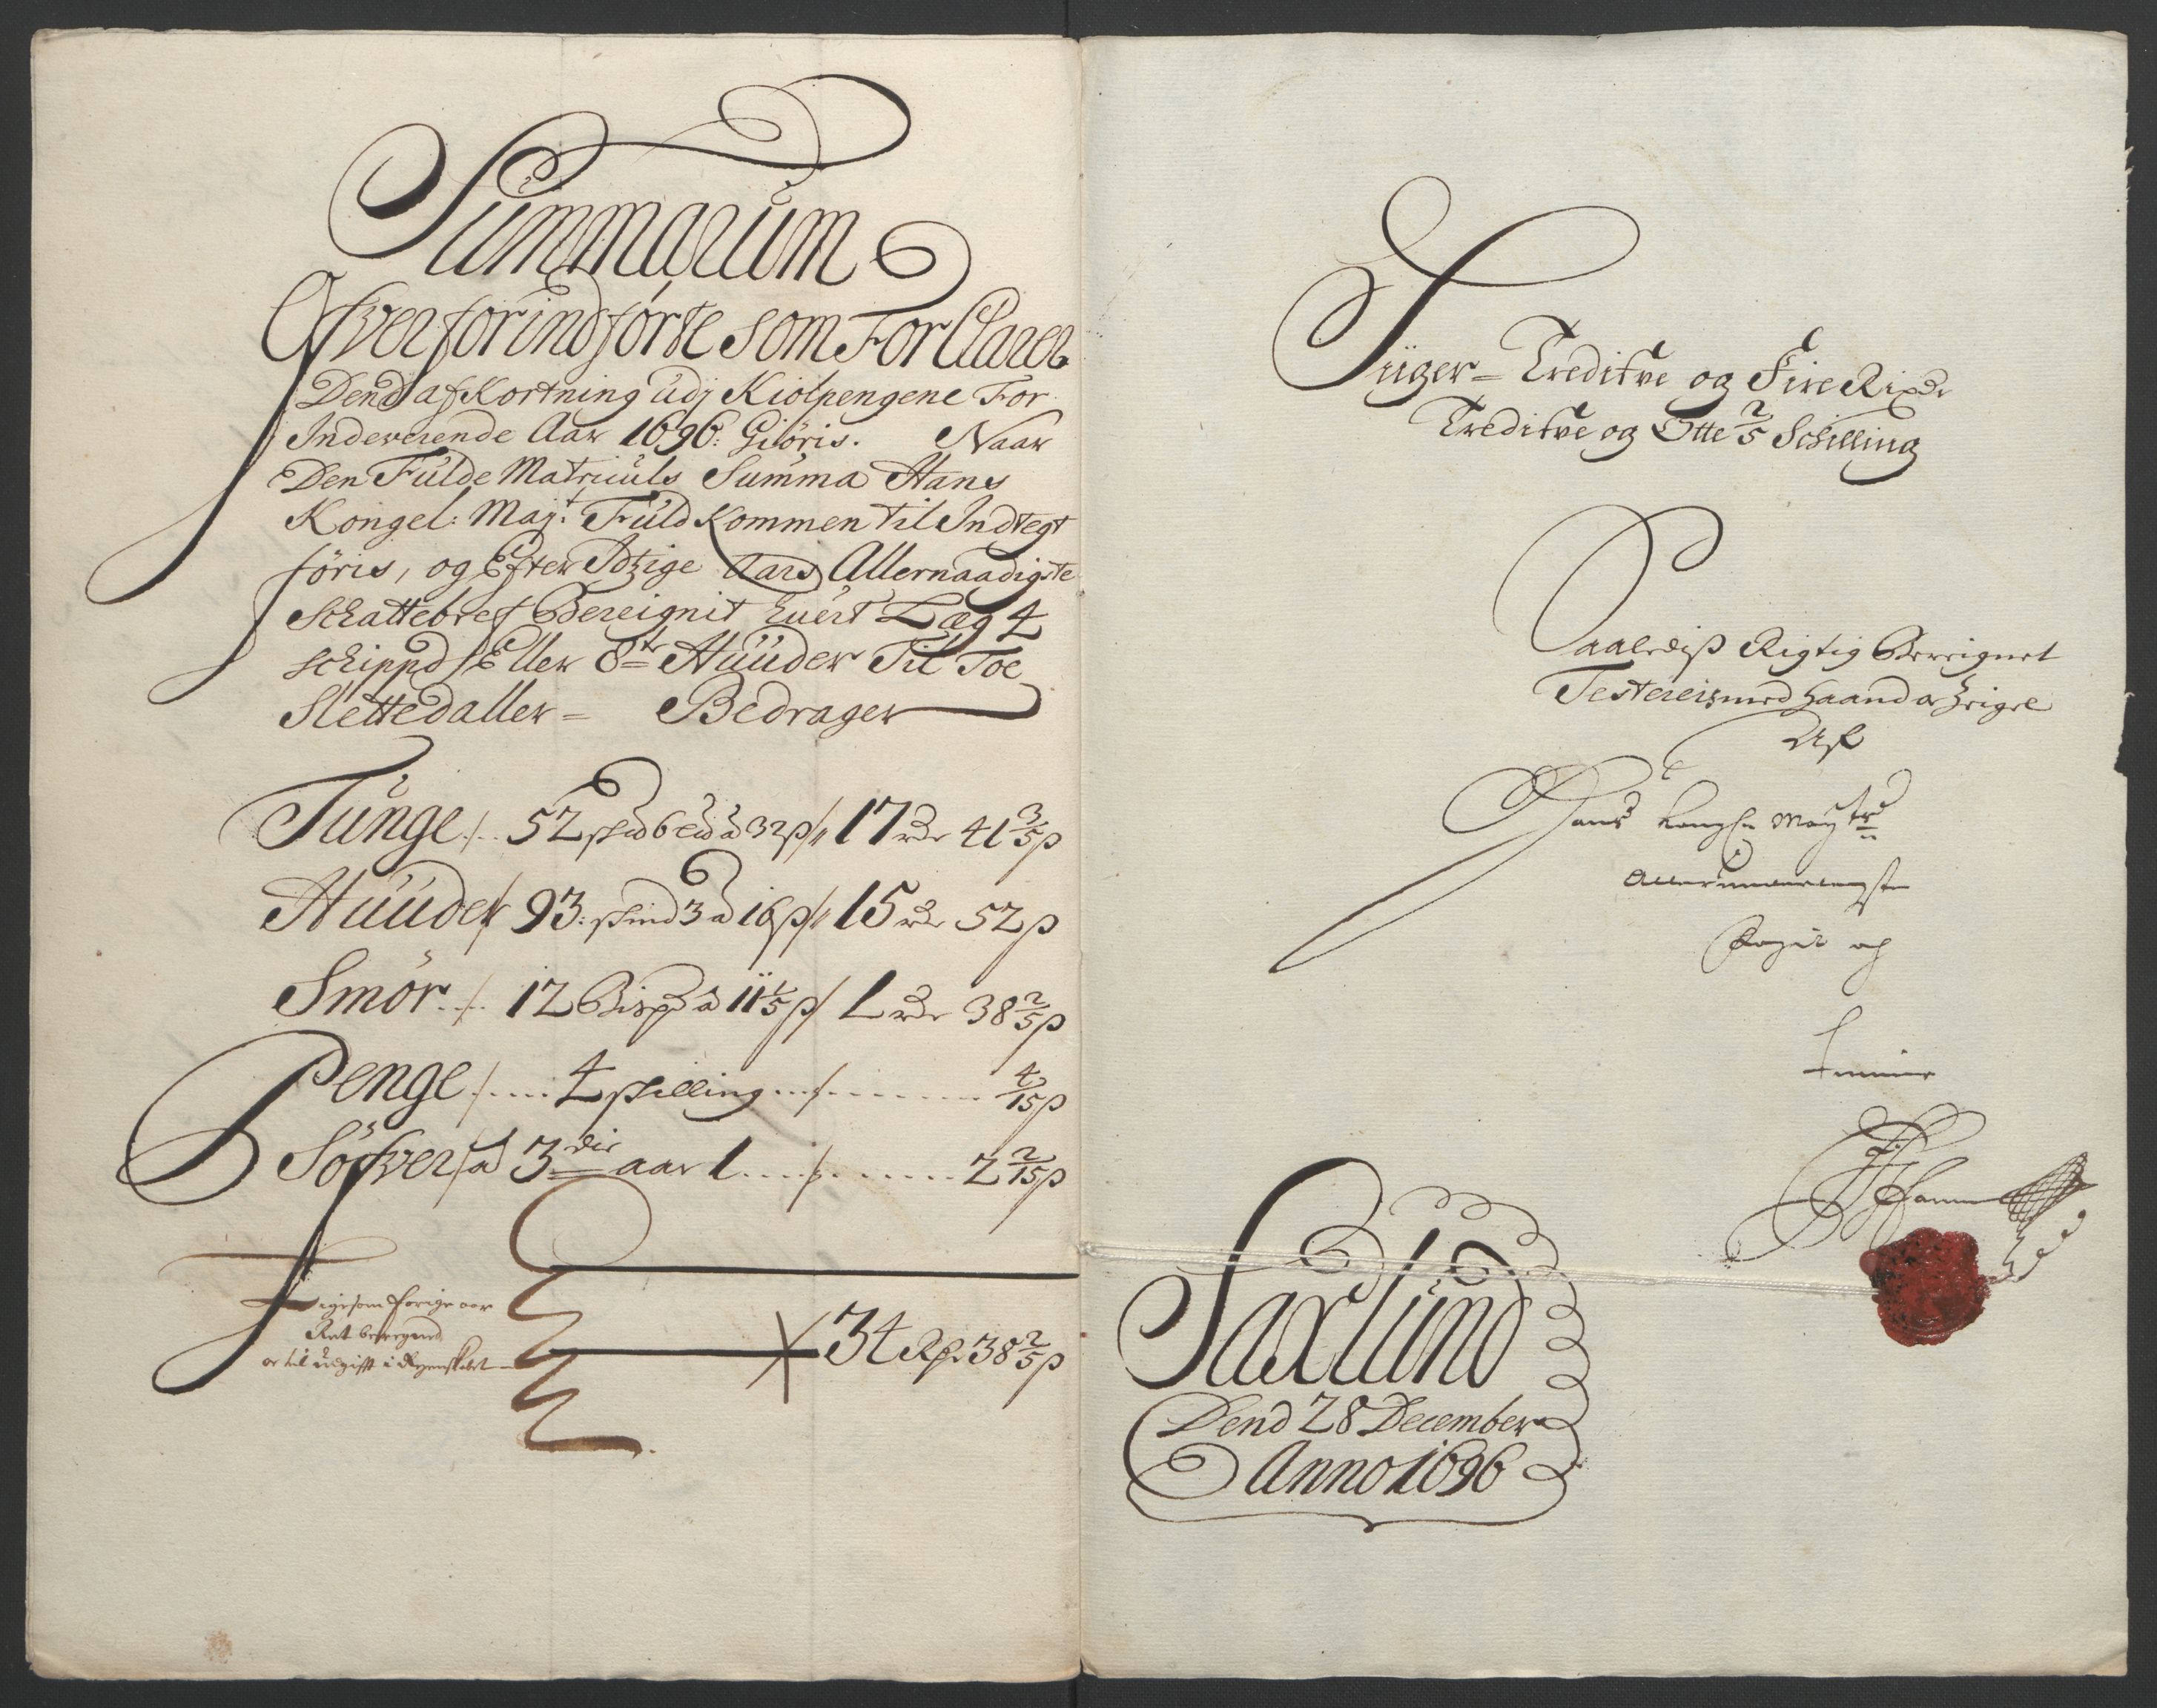 Summarum
Ofver forindførte som ForClarer
Dend afKortning udj Kiolpengene For
Indeverende Aar 1696: Giøris. Naar
Den Fulde Matriculs Summa Hans
Kongel: May:t Fuld Kommen til Indtegt
føris, og Efter Idtzige Aars Allernaadigste
Schattebref Bereignit huert Læg 4
schippd Eller 8te Huuder Til Toe
Slettedaller = Bedrager
Tunge /.. 52 6 a 32 ß // 17 rdr 41 3/5 ß
Huuder / 93: skind 3 a 16 ß // 15 rdr 52 ß
Smør ./. 12 Bispd a 11 1/5 ß / 1 rdr 38 2/5 ß
Penge /.... 4 skilling .../....... 4/15 ß
Sølfver / a 3die aar 1..../....... 2 2/15 ß
Ligesom forige aar
Ret beregned
er til udgifft i Regenskabet
34 Rdr 38 2/5 ß
Siger = Treditve og Fire Rixdr
Treditve og Otte 2/5 Schilling
Saalediß Rigtig Bereignet
Testereis med haand og Zeigel
Af
Hans Kongl: Maytz
Allerunderdanigste
Foget og
Tienner
Saxlund
Dend 28 December
Anno 1696